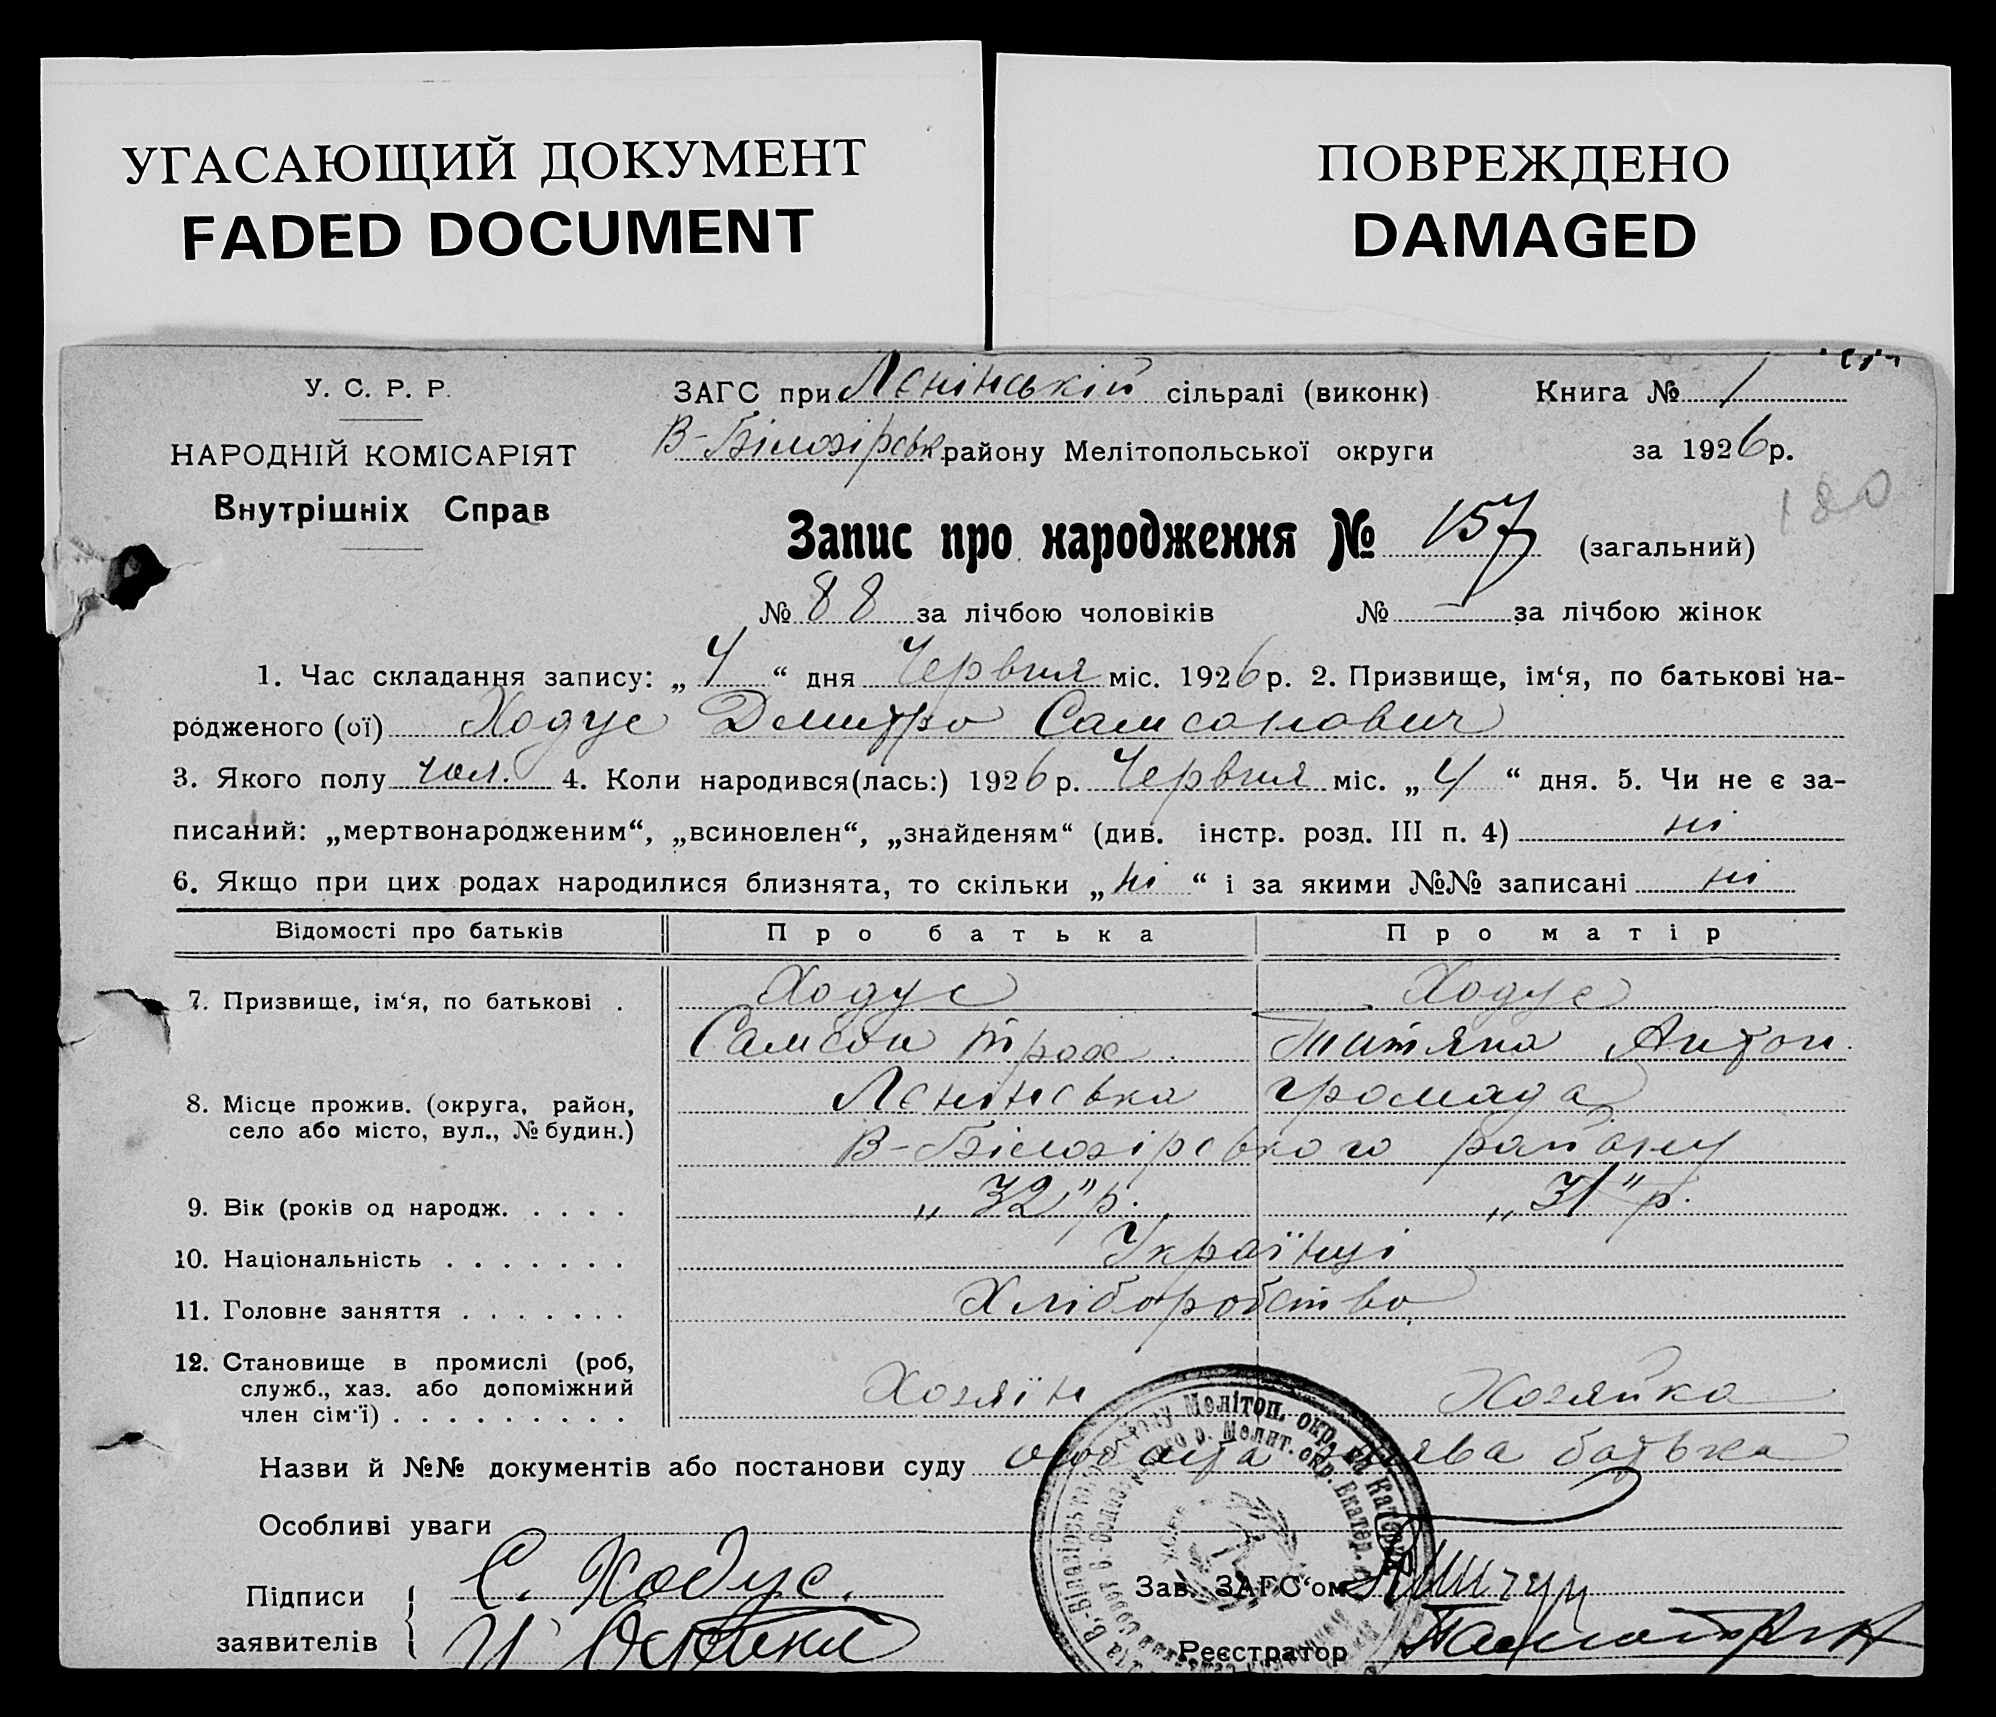 УГАСАЮЩИЙ ДОКУМЕНТ
FADED DOCUMENT
ПОВРЕЖДЕНО
DAMAGED
У. С. Р. Р.
НАРОДНІЙ КОМІСАРІЯТ
Внутрішніх Справ
ЗАГС при Ленінській сільраді (виконк)
В-Білозірськ. району Мелітопольської округи
Книга № 1
за 1926 р.
180
Запис про народження № 157 (загальний)
№ 88 за лічбою чоловіків № — за лічбою жінок
1. Час складання запису: „ 4 “ дня Червня міс. 1926 р. 2. Призвище, ім‘я, по батькові на-
родженого (ої) Ходус Дмитро Самсонович
3. Якого полу чол. 4. Коли народився(лась:) 1926 р. Червня міс. „ 4 “ дня. 5. Чи не є за-
писаний: „мертвонародженим“, „всиновлен“, „знайденям“ (див. інстр. розд. III п. 4) ні
6. Якщо при цих родах народилися близнята, то скільки „ ні “ і за якими №№ записані ні
Відомості про батьків Про батька Про матір
7. Призвище, ім‘я, по батькові . Ходус Ходус
Самсон Троф. Титяна Антон.
8. Місце прожив. (округа, район, Ленінська громада
село або місто, вул., № будин.)
В-Білозірського району
9. Вік (років од народж. . . . . „ 32 " р. „ 31 " р.
10. Національність . . . . . . . Українці
11. Головне заняття . . . . . . . Хліборобство
12. Становище в промислі (роб,
служб., хаз. або допоміжний
член сім'ї) . . . . . . . . . Хозяїн Хозяйка
Назви й №№ документів або постанови суду особиста заява батька
Особливі уваги
Підписи
заявителів
С. Ходус.
Зав. ЗАГС‘ом
Реєстратор
Мелітоп. окр. на Катер
р. Мелит. окр. Екатер.